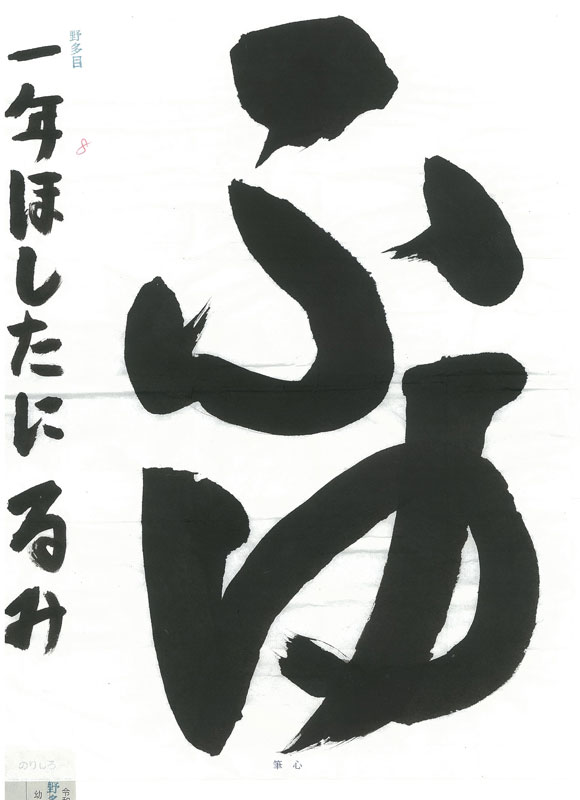 ふゆ
一年ほしたにるみ
野多目
8
筆心
のりしろ